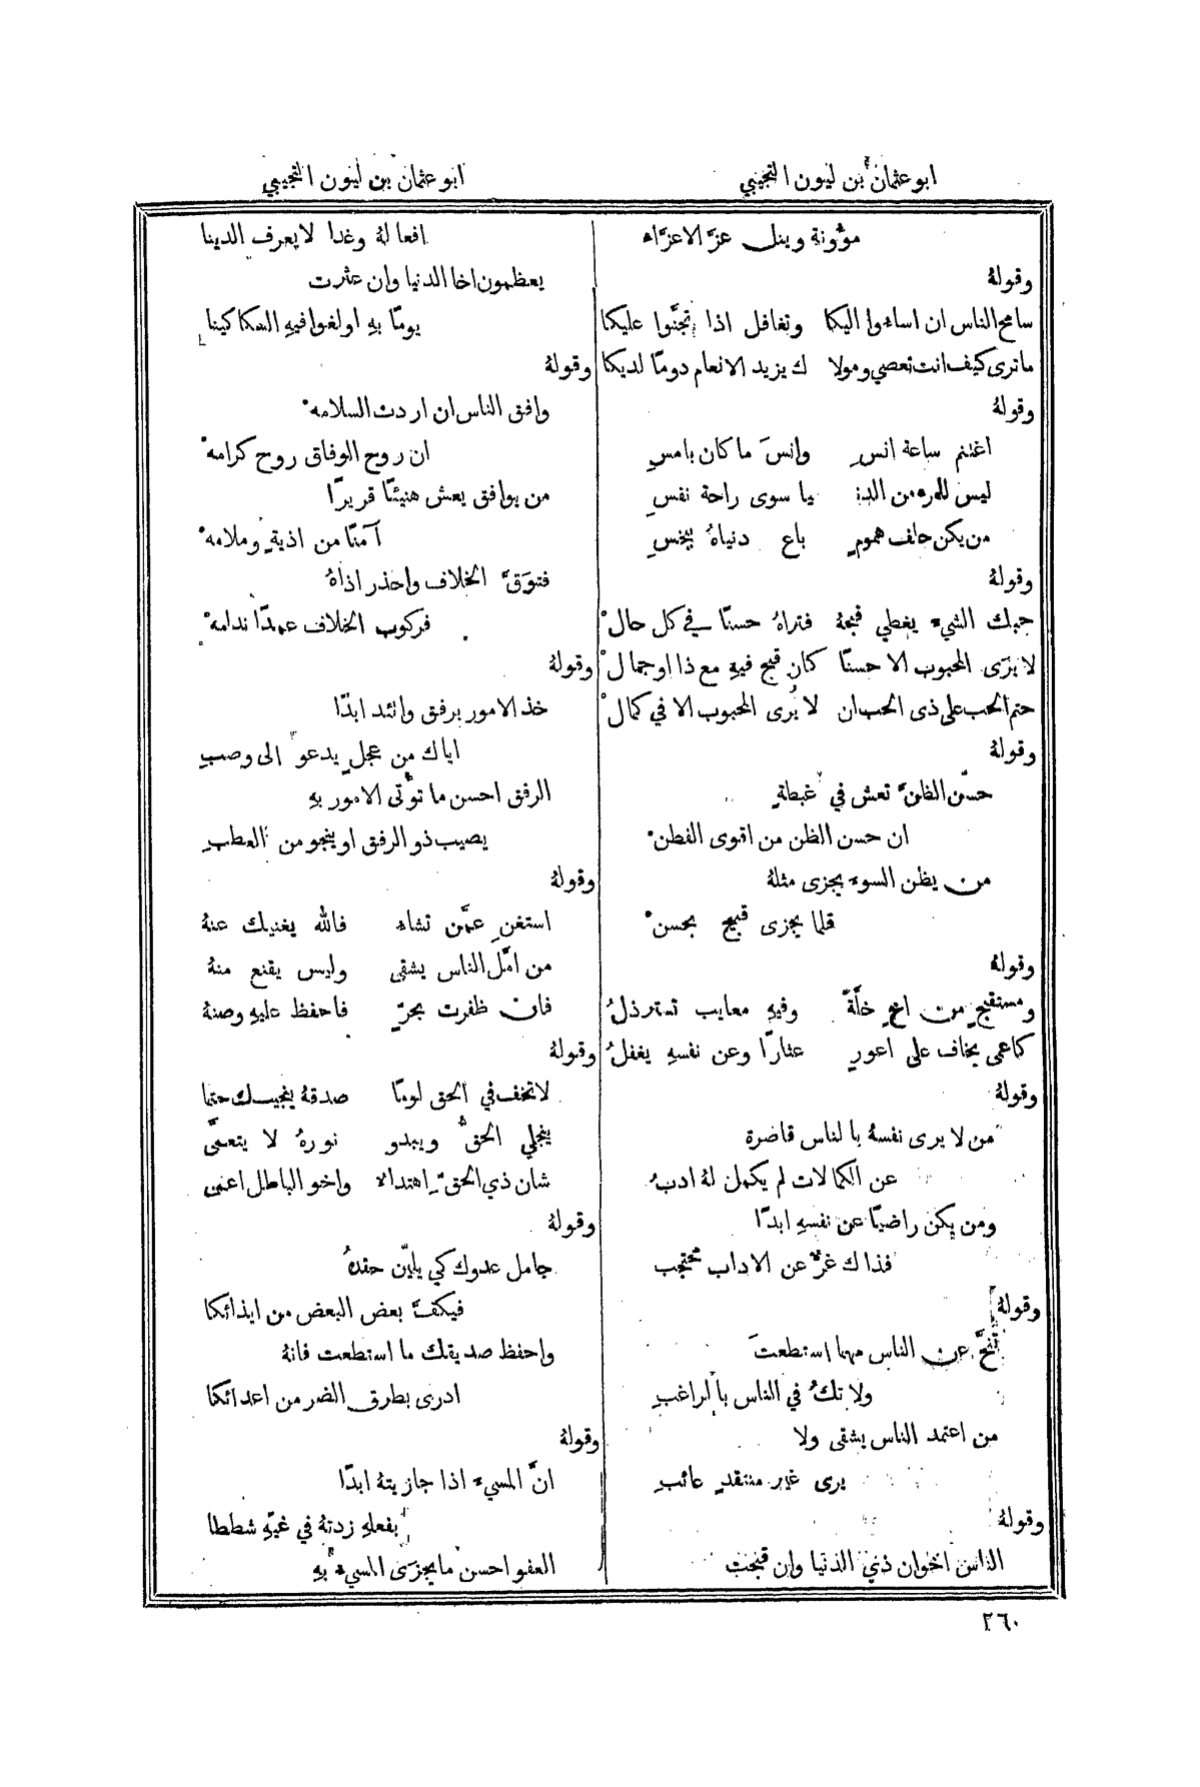 ابو عثمان بن ليون التجيبي
ابو عثمان بن ليون التجيبي
مؤُونة وينل عزَّ الاعزَّاء
وقولهُ
سامح الناس ان اساءوا اليكا وتغافل اذا تجنَّوا عليكا
ما ترى كيف انت تعصي ومولا ك يزيد الانعام دومًا لديكا
وقولهُ
اغتنم ساعة انسٍ وانسَ ما كان بامسِ
ليس للمرء من الدنـ يا سوى راحة نفسِ
من يكن حلف همومٍ باع دنياهُ ببخسِ
وقولهُ
حبك الشيء يغطي قبحهُ فتراهُ حسنًا في كل حالْ
لا يرَى المحبوب الا حسنًا كان قبح فيهِ مع ذا او جمالْ
حتم الحب على ذى الحب ان لا يُرى المحبوب الا في كمالْ
وقولهُ
حسّن الظنَّ تعش في غبطةٍ
ان حسن الظن من اقوى الفطنْ
من يظن السوء يجزى مثلهُ
قلما يجزى قبيح بحسنْ
وقولهُ
ومستقبحٍ من اخٍ خلَّةً وفيهِ معايب تسترذلُ
كاعمى يخاف على اعورٍ عثارًا وعن نفسهِ يغفلُ
وقولهُ
من لا يرى نفسهُ بالناس قاضرة
عن الكمالات لم يكمل لهُ ادبُ
ومن يكن راضيًا عن نفسهِ ابدًا
فذاك غرٌّ عن الاداب محتجب
وقولهُ
تنحَّ عن الناس مهما استطعتَ
ولا تكُ في الناس بالراغبِ
من اعتمد الناس يشقى ولا
يرى غير منتقدٍ عائبِ
وقولهُ
الناس اخوان ذي الدنيا وان قبحت
افعالهُ وغدا لا يعرف الدينا
يعظمون اخا الدنيا وان عثرت
يومًا بهِ اولغوا فيهِ السكاكينا
وقولهُ
وافق الناس ان اردت السلامهْ
ان روح الوفاق روح كرامهْ
من يوافق يعش هنيئًا قريرًا
آمنًا من اذيةٍ وملامهْ
فتوَقَّ الخلاف واحذر اذاهُ
فركوب الخلاف عمدًا ندامهْ
وقولهُ
خذ الامور برفق واتئد ابدًا
اياك من عجلٍ يدعو الى وصبِ
الرفق احسن ما تؤْتى الامور بهِ
يصيب ذو الرفق او ينجو من العطبِ
وقولهُ
استغنِ عمَّن تشاء فالله يغنيك عنهُ
من امَّلَ الناس يشقى وليس يقنع منهُ
فان ظفرت بحرٍّ فاحفظ عليهِ وصنهُ
وقولهُ
لا تخف في الحق لومًا صدقهُ ينجيك حتما
ينجلي الحقُّ ويبدو نورهُ لا يتعمَّى
شان ذي الحقِّ اهتداء واخو الباطل اعمى
وقولهُ
جامل عدوك كي يليّن حقدهُ
فيكفَّ بعض البعض من ايذائكا
واحفظ صديقك ما استطعت فانهُ
ادرى بطرق الضر من اعدائكا
وقولهُ
انَّ المسيء اذا جازيتهُ ابدًا
بفعلهِ زدتهُ في غيّهِ شططا
العفو احسن ما يجزَى المسيء بهِ
٢٦٠